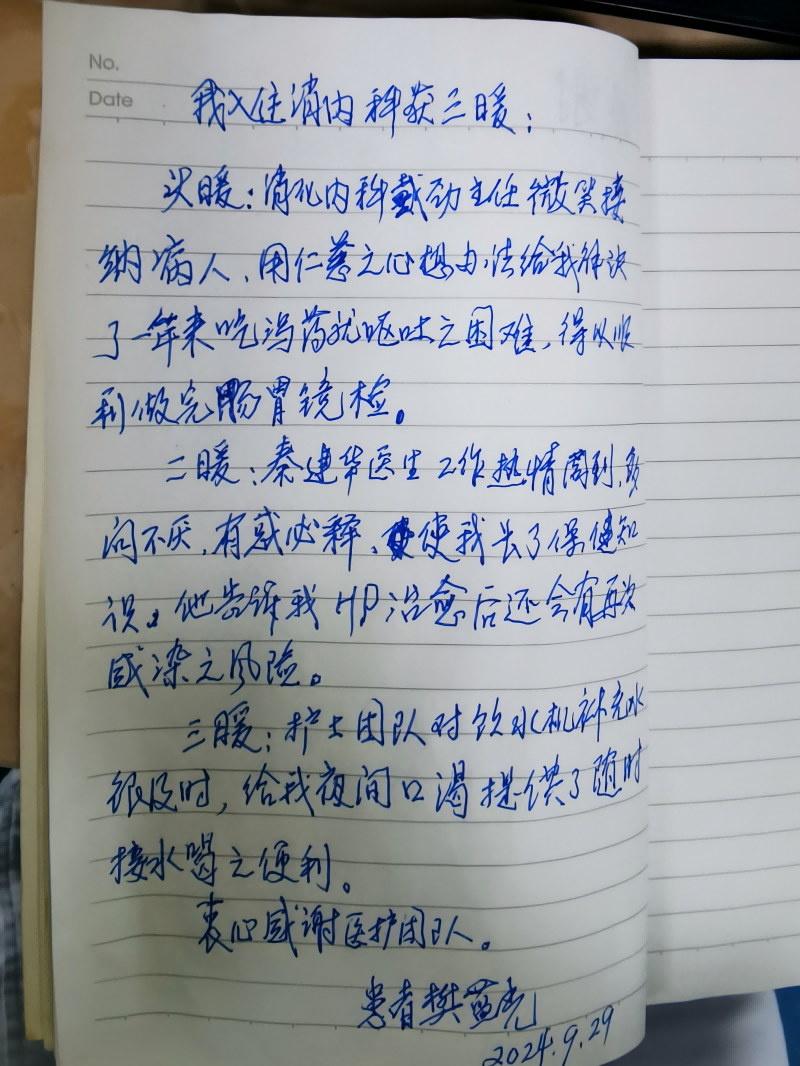 No.
Date
我入住消内科获三暖：
头暖：消化内科戴劲主任微笑接
纳病人、用仁慈之心想办法给我解决
了一年来吃泻药就呕吐之困难，得以顺
利做完肠胃镜检。
二暖：秦建华医生工作热情周到、多
问不厌、有惑必释、使我长了保健知
识。他告诉我HP治愈后还会有再次
感染之风险。
三暖：护士团队对饮水机补充水
很及时，给我夜间口渴提供了随时
接水喝之便利。
衷心感谢医护团队。
患者樊蓝光
2024.9.29